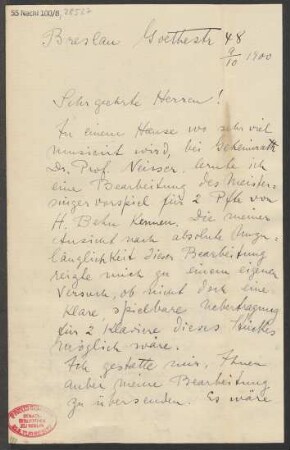 55 Nachl 100/B,
Breslau Goethestr 48
9/10 1900
Sehr geehrte Herren!
In einem Hause wo sehr viel
musicirt wird, bei Geheimrath
Dr. Prof. Neisser, lernte ich
eine Bearbeitung des Meister-
singervorspiel für 2 Pfte von
H. Behn kennen. Die meiner
Ansicht nach absolute Unzu-
länglichkeit dieser Bearbeitung
reizte mich zu einem eigenen
Versuch, ob nicht doch eine
klare, spielbare Uebertragung
für 2 Klaviere dieses Stückes
möglich wäre.
Ich gestatte mir, Ihnen
anbei meine Bearbeitung
zu übersenden. Es wäre